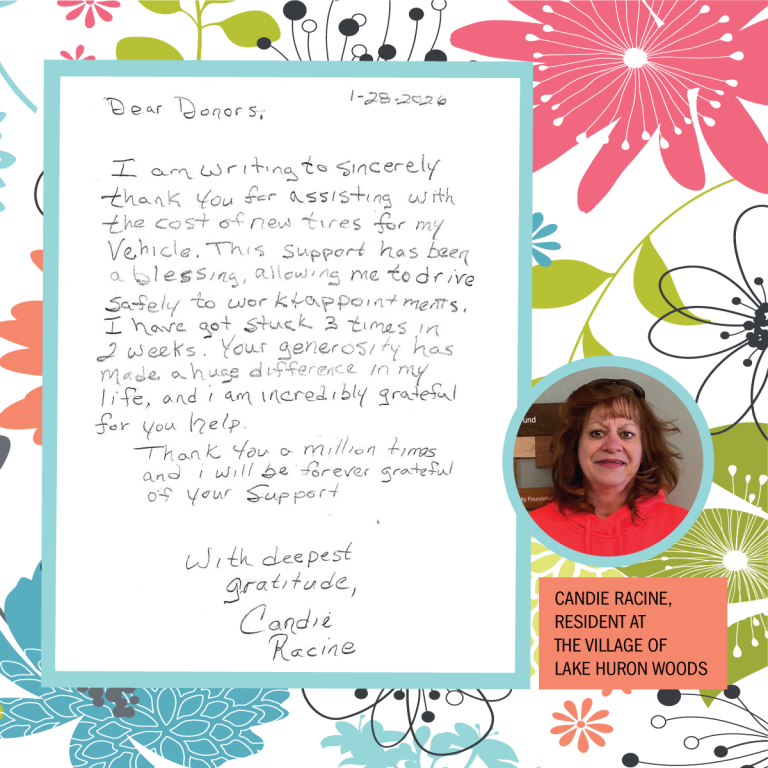 Dear Donors,
1-28-2026
I am writing to sincerely
thank you for assisting with
the cost of new tires for my
Vehicle. This support has been
a blessing, allowing me to drive
safely to work + appointments.
I have got stuck 3 times in
2 weeks. Your generosity has
made a huge difference in my
life, and i am incredibly grateful
for you help.
Thank you a million times
and i will be forever grateful
of your support
With deepest
gratitude,
Candie
Racine
und
ly Foundation
CANDIE RACINE,
RESIDENT AT
THE VILLAGE OF
LAKE HURON WOODS